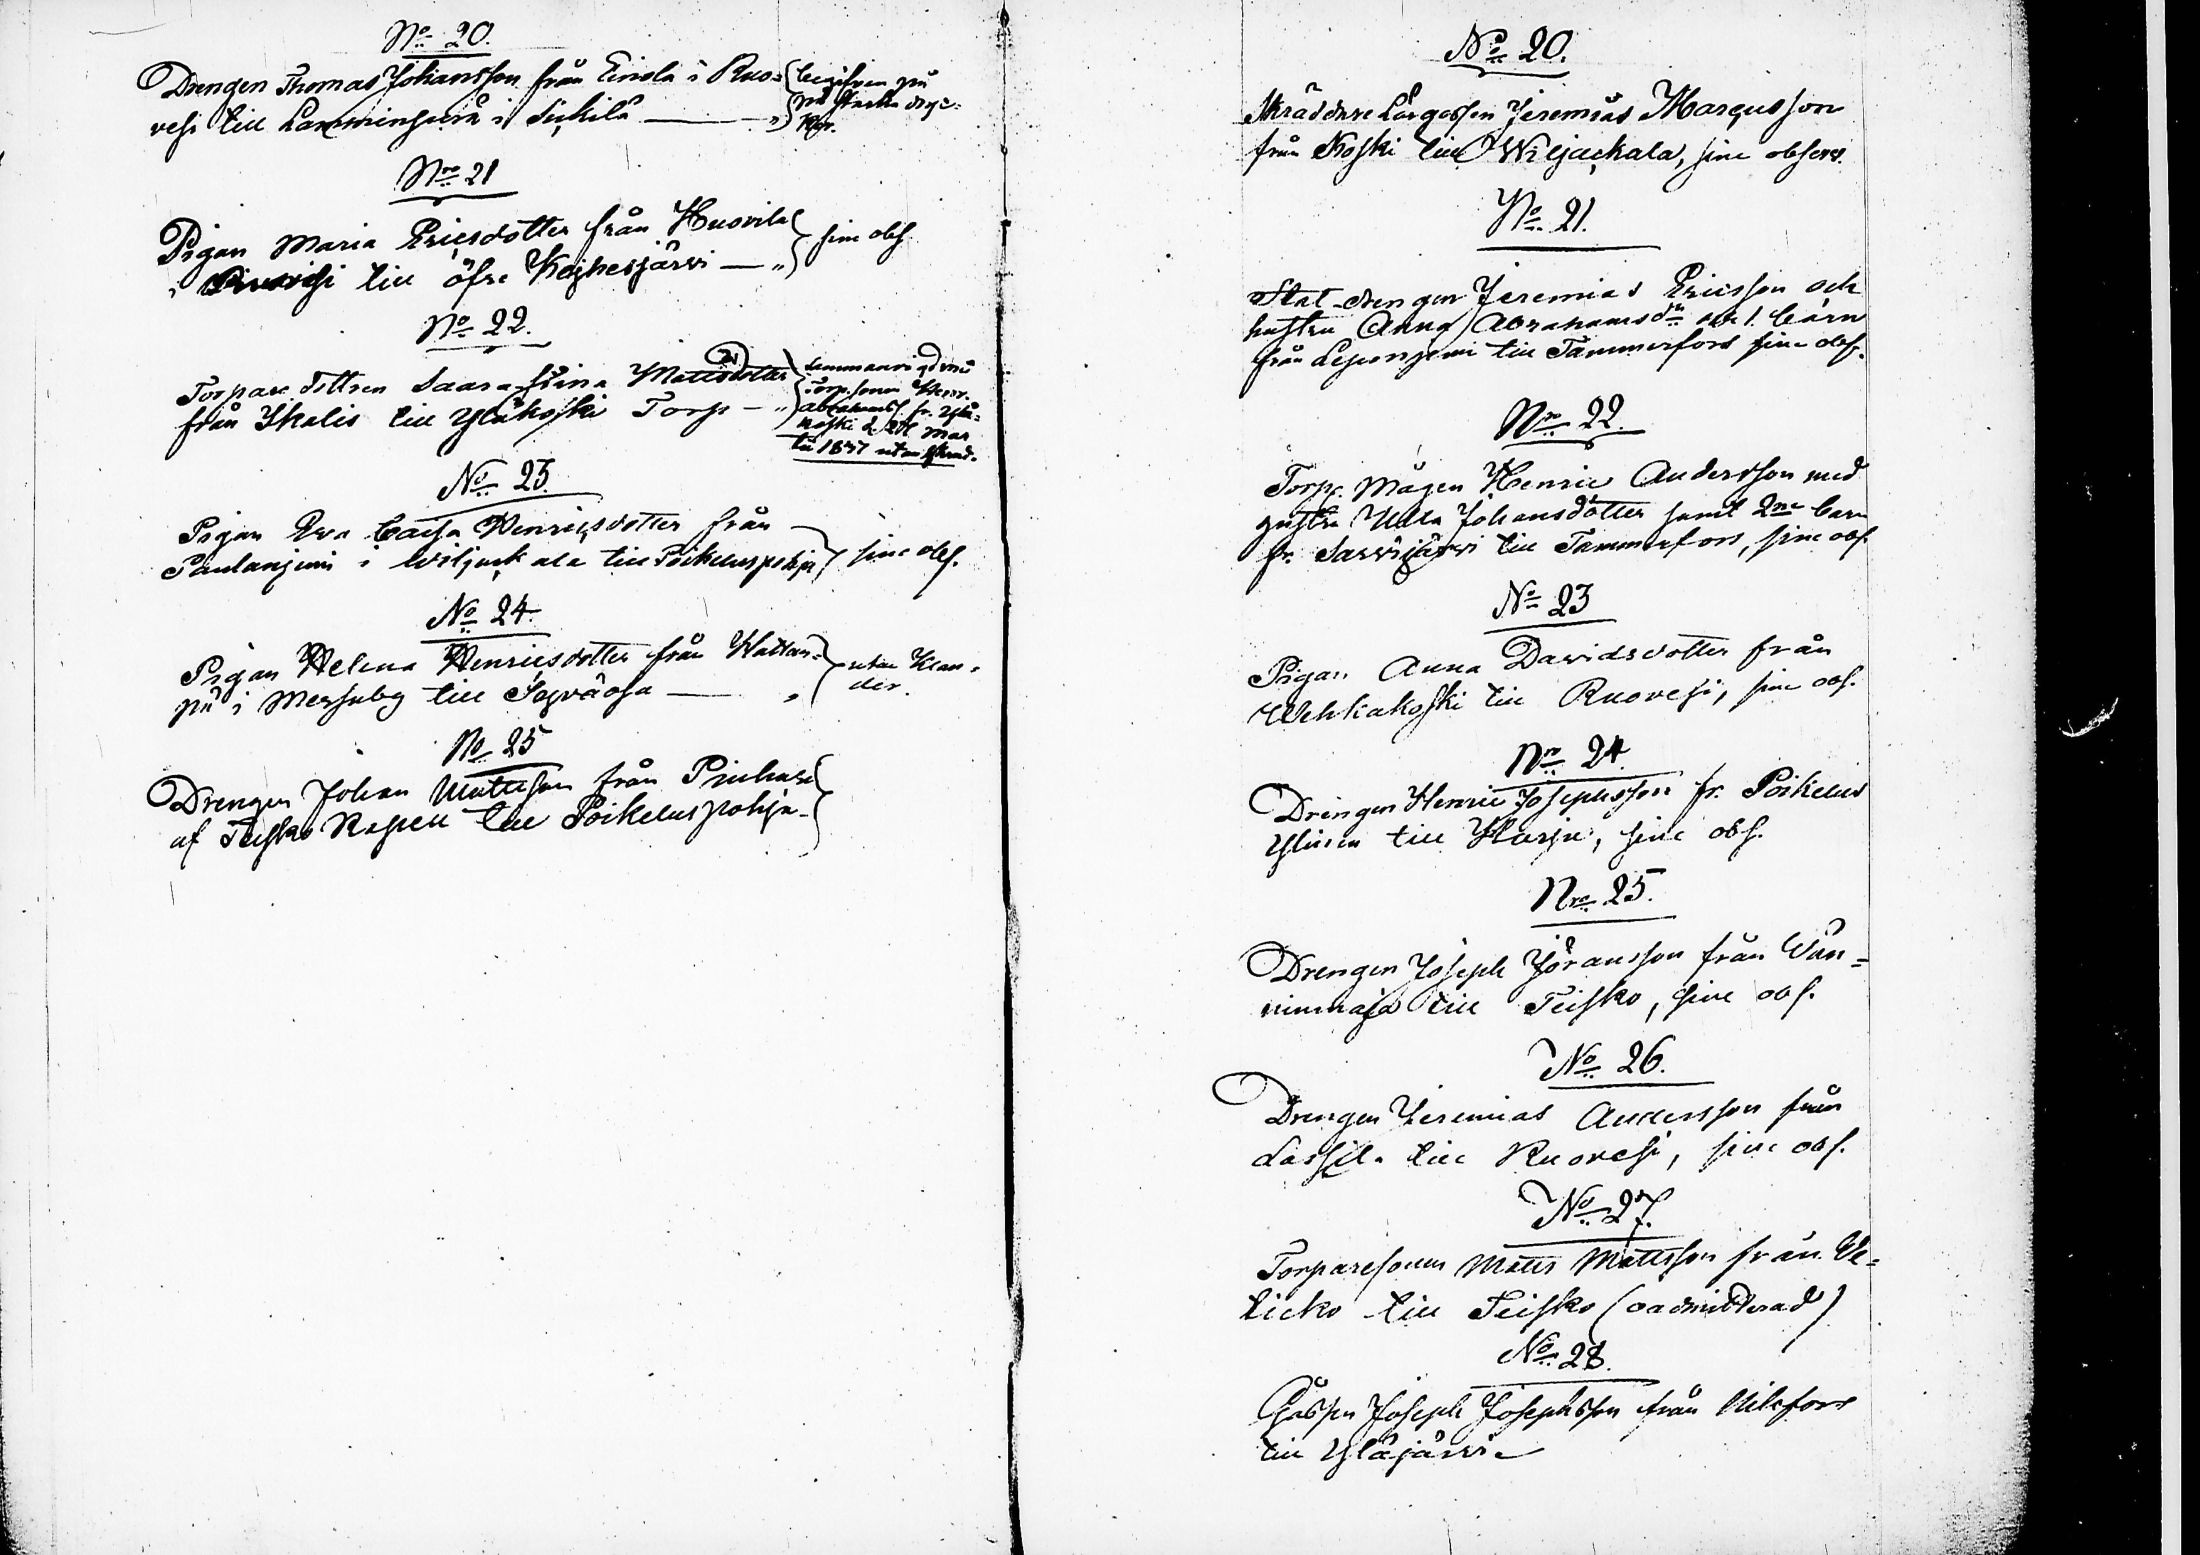 No 20.
Drengen Thomas Johansson från Einola i Ruo=
vesi till Lamminperä i Sikilä — „
begifven på
på starka dryc=
ker.
Nro 21
Pigan Maria Ericsdotter från Kuovila
i till öfre Keihesjärvi — „
sine obs.
No 22.
Torpare dottren Saara Stina Mattsdotter
från Ikalis till Yläkoski Torp — „
sammanvigd med
Torp. sonen Henr.
Abrahamss. fr. Ylä=
koski d. Mar
tii 1837 utan
No 23.
Pigan Eva Cajsa Henricsdotter från
Paulaniemi i Wiljackala till Poikeluspohja
sine obs.
No 24.
Pigan Helena Henricsdotter från Kattan=
pä i Messuby till — „
utan Klan=
der.
No 25
Drengen Johan Mattsson från
af Teisko Kapell till Poikeluspohja
No 20.
Skräddare Lärgossen Jeremias Marcusson
från Koski till Wiljackala, sine observ.
No 21.
Stat drengen Jeremias Ericsson och
hustru Anna Abrahamsdr och 1. barn
från Leponiemi till Tammerfors sine obs.
Nro 22.
Torp. Mågen Henric Andersson med
hustru Ulla Johansdotter samt 2ne barn
fr. Sarvijärvi till Tammerfors, sine obs.
No 23
Pigan Anna Davidsdotter från
Wehkakoski till Ruovesi, sine obs.
Nro 24.
Drengen Henric Josephsson fr. Poikelus
Ylinen till Harju, sine obs.
Nro 25.
Drengen Joseph Jöransson från Wän=
ninmaja till Teisko, sine obs.
No 26.
Drengen Jeremias Andersson från
Lassila till Ruovesi, sine obs.
No 27.
Torparesonen Matts Mattsson från Ve=
licko till Teisko (oadmitterad)
No 28.
Gossen Joseph Josephsson från
till Ylöjärvi